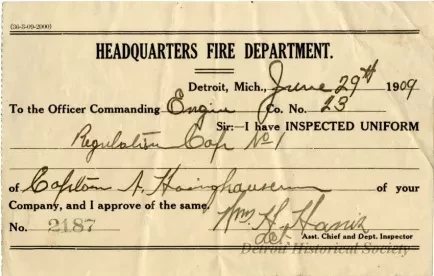 (36-3-09-2000)
HEADQUARTERS FIRE DEPARTMENT.
Detroit, Mich., June 29th 1909
To the Officer Commanding Engin Co. No. 23
Sir:—I have INSPECTED UNIFORM
Regulation Cap No 1
of Captain A. of your
Company, and I approve of the same.
No. 2187 Wm. H.
Asst. Chief and Dept. Inspector
Detroit Historical Society